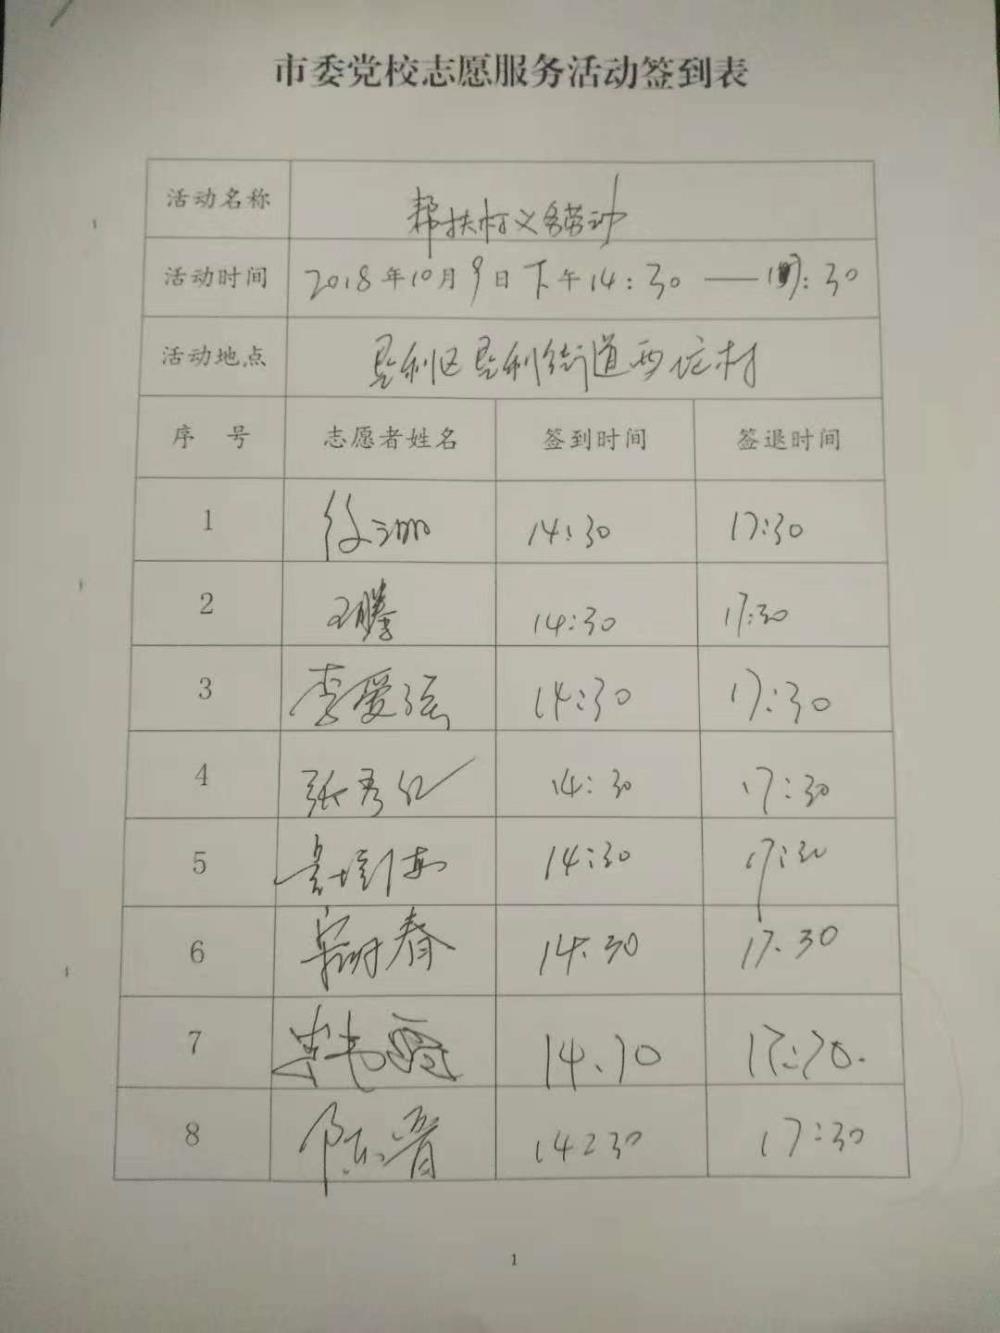 市委党校志愿服务活动签到表
活动名称 帮扶村义务劳动
活动时间 2018年10月9日下午14:30——17:30
活动地点 垦利区垦利街道西伍村
序 号 志愿者姓名 签到时间 签退时间
1 14:30 17:30
2 王腾 14:30 17:30
3 李爱弦 14:30 17:30
4 张秀红 14:30 17:30
5 14:30 17:30
6 春 14:30 17:30
7 李 14:30 17:30.
8 陈晋 14:30 17:30
1